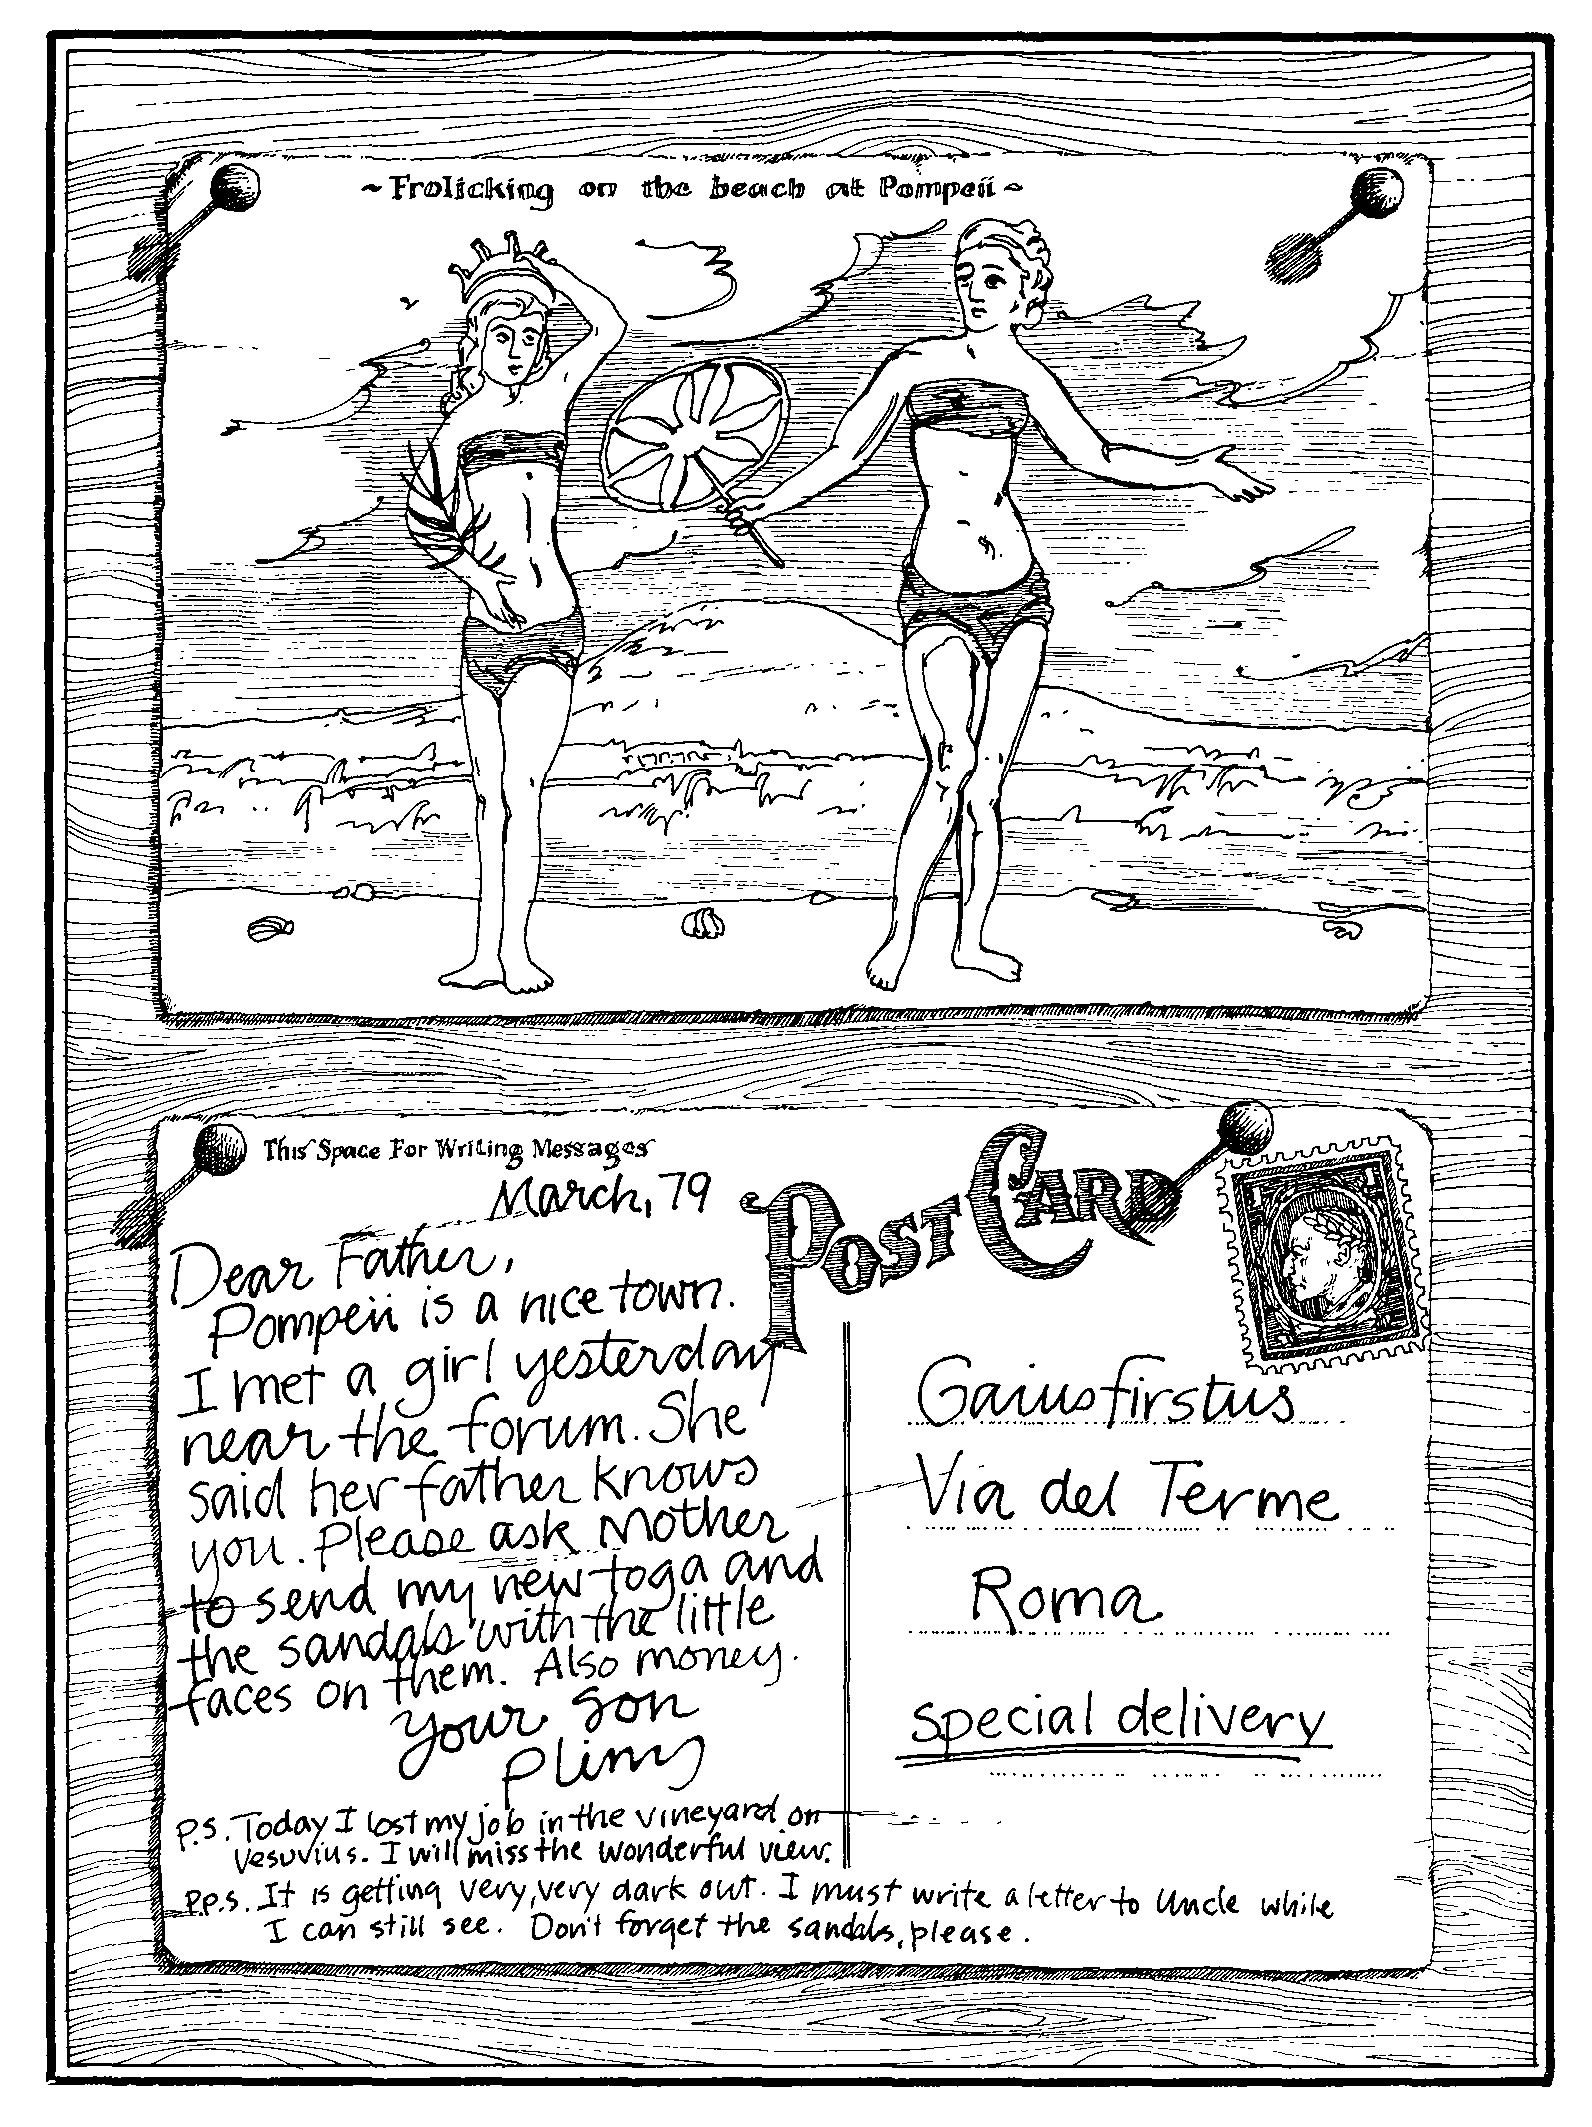 ~ Frolicking on the beach at Pompeii ~
This Space For Writing Messages
POST CARD
March, 79
Dear Father,
Pompeii is a nice town.
I met a girl yesterday
near the forum. She
said her father knows
you. Please ask Mother
to send my new toga and
the sandals with the little
faces on them. Also money.
your son
Pliny
P.S. Today I lost my job in the vineyard on
Vesuvius. I will miss the wonderful view.
P.P.S. It is getting very, very dark out. I must write a letter to Uncle while
I can still see. Don't forget the sandals, please.
Gaius firstus
Via del Terme
Roma
special delivery